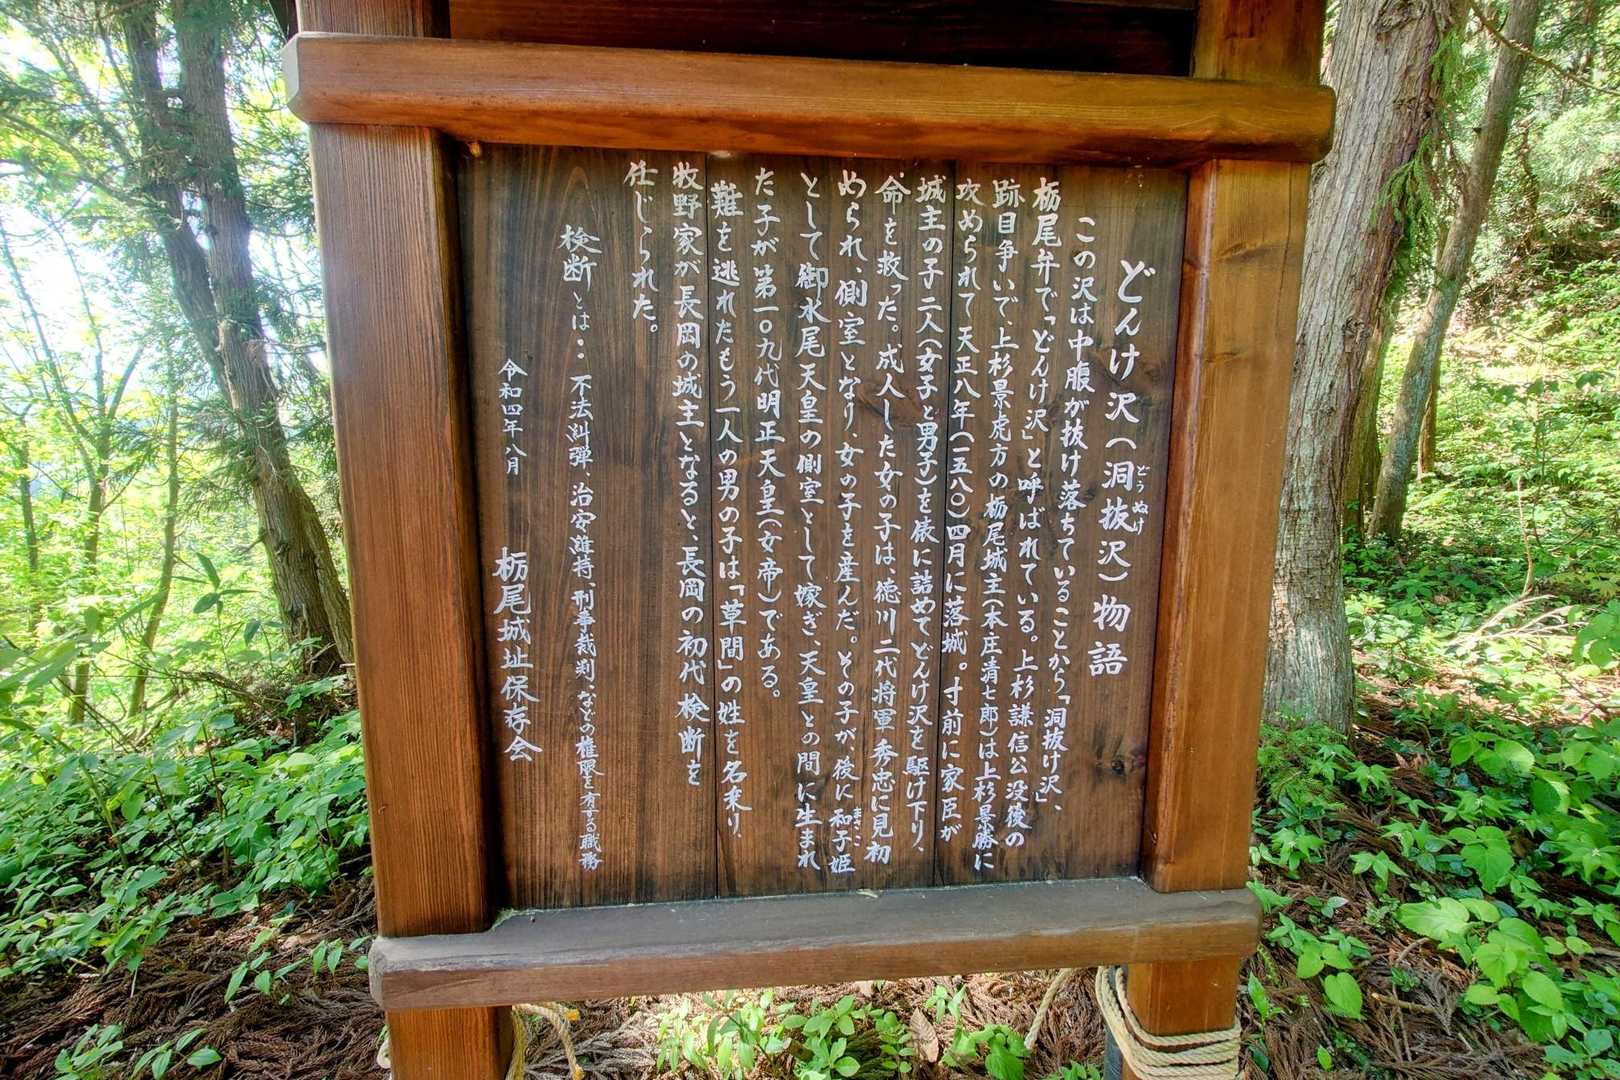 どんけ沢（洞抜沢）物語
どうぬけ
この沢は中腹が抜け落ちていることから「洞抜け沢」、
栃尾弁で「どんけ沢」と呼ばれている。上杉謙信公没後の
跡目争いで、上杉景虎方の栃尾城主（本庄清七郎）は上杉景勝に
攻められて天正八年（一五八〇）四月に落城。寸前に家臣が
城主の子二人（女子と男子）を俵に詰めてどんけ沢を駆け下り、
命を救った。成人した女の子は、徳川二代将軍秀忠に見初
められ、側室となり、女の子を産んだ。その子が、後に和子姫
まさこ
として御水尾天皇の側室として嫁ぎ、天皇との間に生まれ
た子が第一〇九代明正天皇（女帝）である。
難を逃れたもう一人の男の子は「草間」の姓を名乗り、
牧野家が長岡の城主となると、長岡の初代検断を
任じられた。
検断とは：不法糾弾、治安維持、刑事裁判、などの権限を有する職務
令和四年八月
栃尾城址保存会